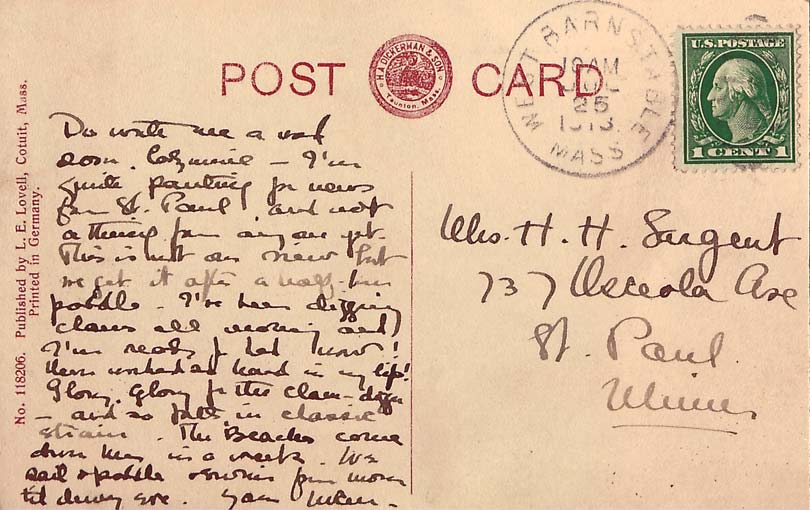 POST CARD
H. A. DICKERMAN & SON
Taunton, Mass.
WEST BARNSTABLE
MASS
25
1913
U.S. POSTAGE
1 CENT 1
No. 118206. Published by L. E. Lovell, Cotuit, Mass.
Printed in Germany.
Do write me a word
soon, — I'm
quite panting for news
from St. Paul, and not
a thing from anyone yet.
This is not our view but
we get it after a half-hour
paddle — I've been digging
clams all morning and
I'm ready for bed now!
Never worked as hard in my life!
Glory, Glory for the clam-digger
— and so forth in classic
strain. The Beaches come
down here in a week. We
sail & paddle from morn
til dewy eve. Yours
Mrs. H. H. Sargent
737 Osceola Ave
St. Paul.
Minn.